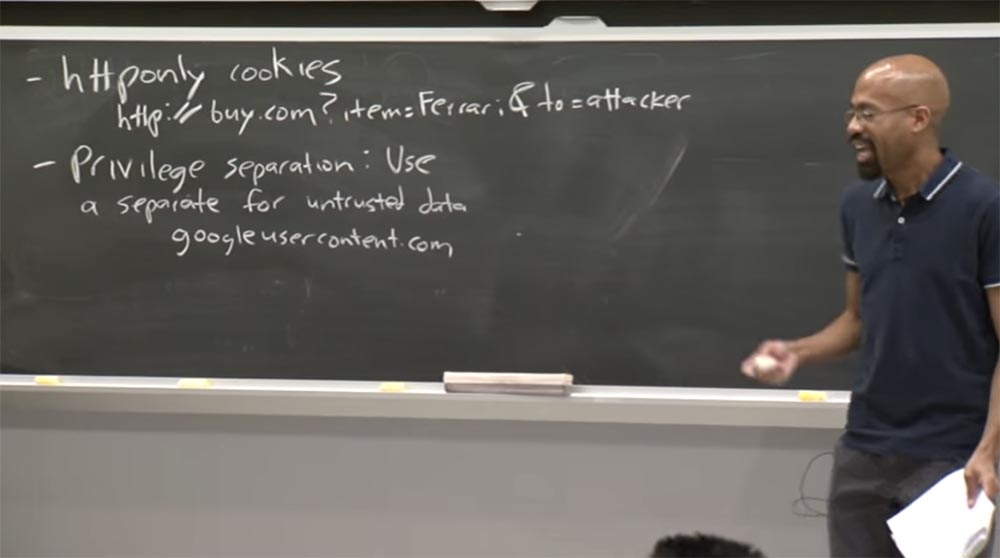 - httponly cookies
http:// buy.com?item=Ferrari&to=attacker
- Privilege separation: Use
a separate for untrusted data
googleusercontent.com